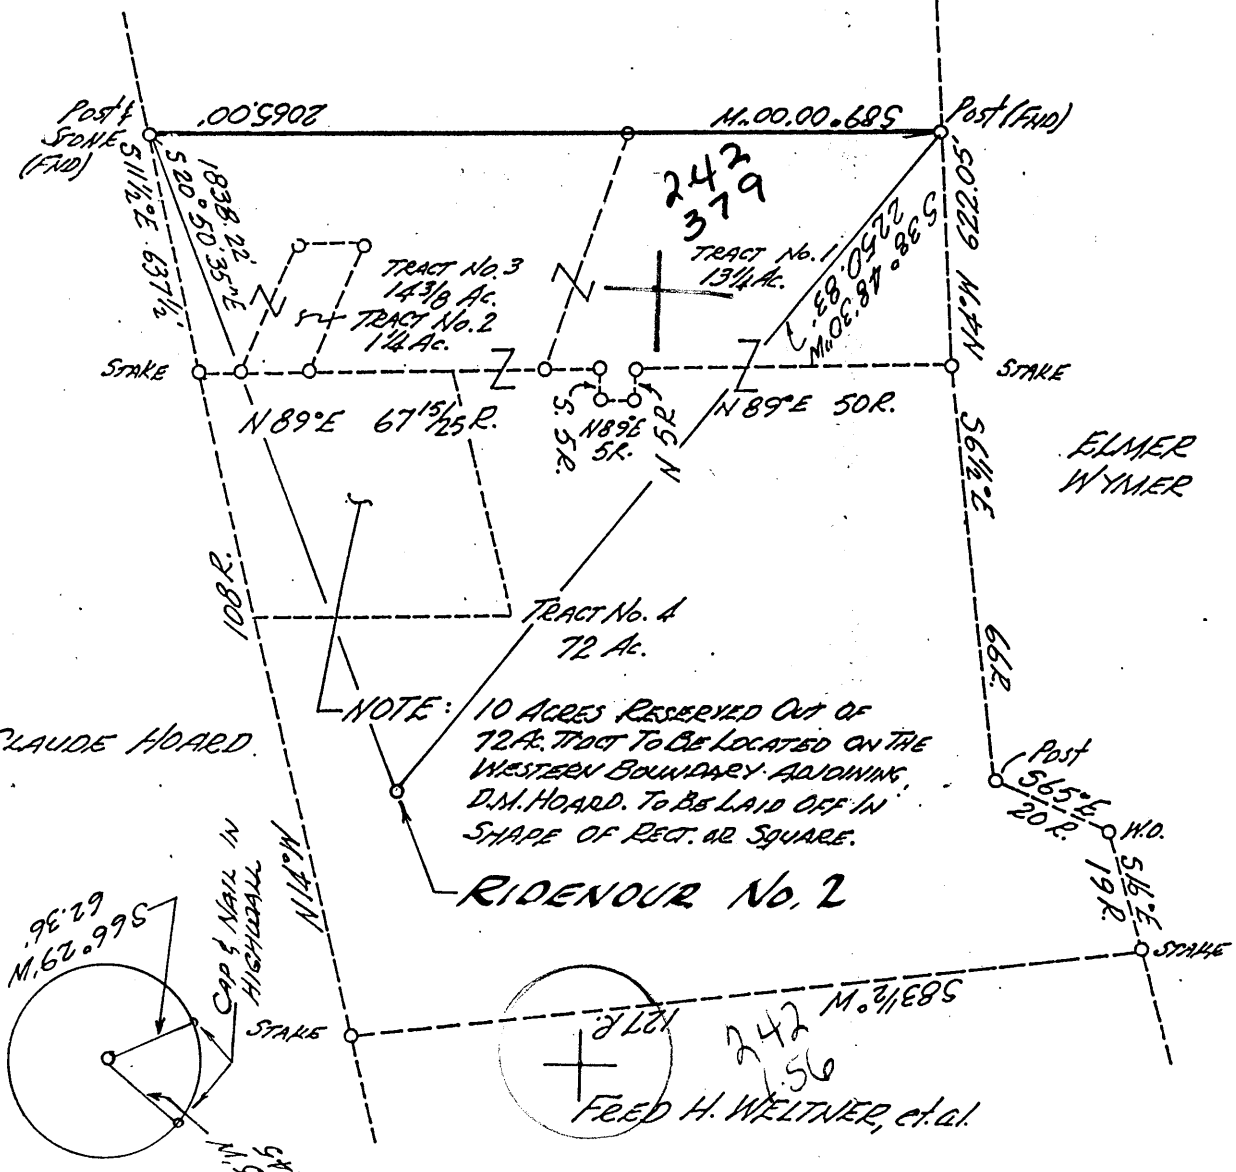 Post &
STONE
(FND)
2065.00'
S89°00'00"W
Post (FND)
S 11½°E 637½'
1838.22'
S20°50'35"E
242
379
TRACT No. 1
13¼ Ac.
TRACT No. 3
14 3/8 Ac.
TRACT No. 2
1¼ Ac.
S38°48'30"W
2250.83'
N4°W 677.05'
STAKE
STAKE
N89°E 67 15/25 R.
S. 5R.
N89°E
5R.
N 5R
N89°E 50R.
S6½°E
66R.
ELMER
WYMER
108R.
N14°W
TRACT No. 4
72 Ac.
CLAUDE HOARD
NOTE: 10 ACRES RESERVED OUT OF
72 Ac. TRACT TO BE LOCATED ON THE
WESTERN BOUNDARY ADJOINING
D.M. HOARD. TO BE LAID OFF IN
SHAPE OF RECT. OR SQUARE.
Post
S65°E
20 R.
W.O.
S16°E
19R.
RIDENOUR NO. 2
S66°29'W
62.36'
CAP & NAIL IN
HIGHWALL
STAKE
STAKE
S83½°W
127R.
242
1.56
FRED H. WELTNER, et.al.